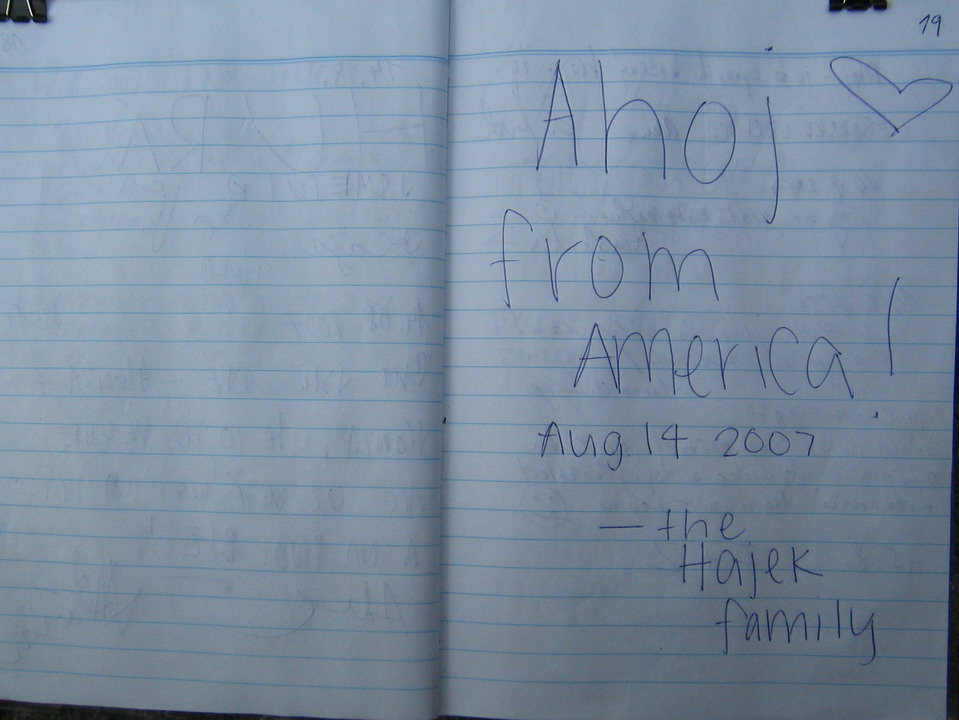 19
Ahoj
from
America!
Aug 14 2007
— the
Hajek
family